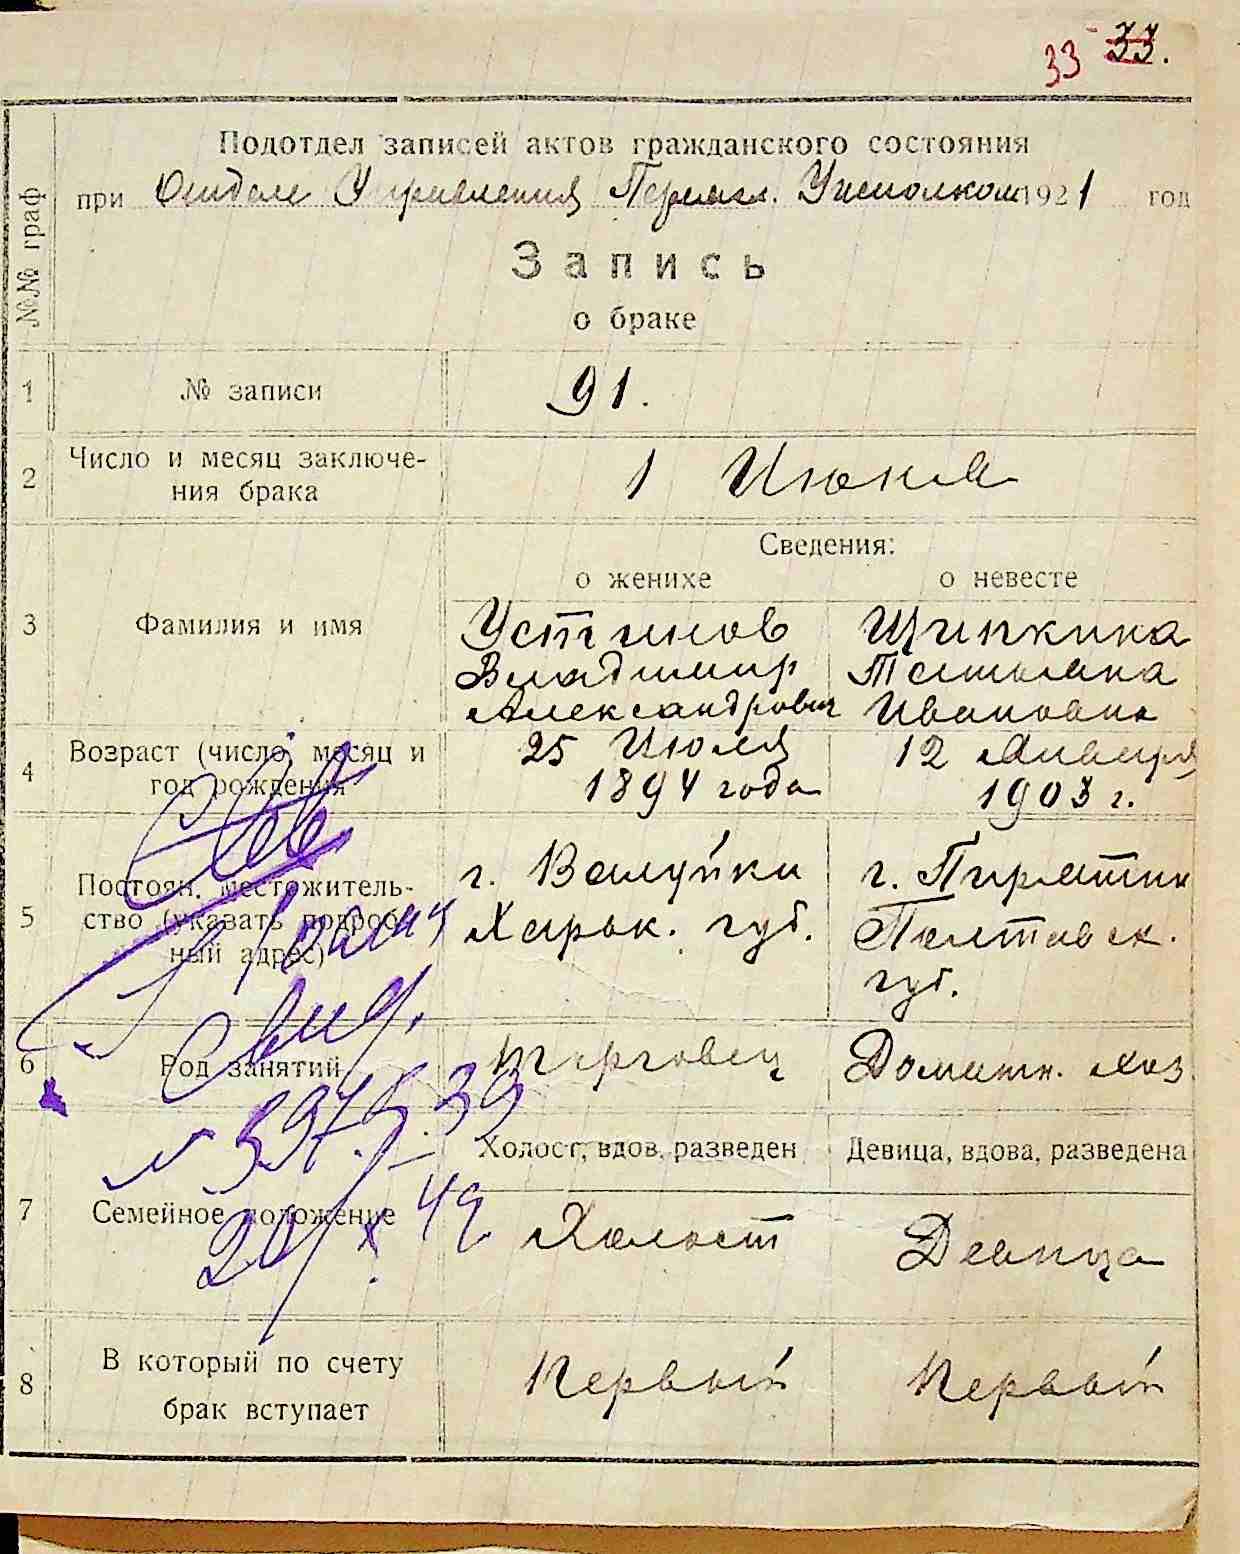 33 33.
Подотдел записей актов гражданского состояния
при Отделе Управления Исполкома 1921 год
№№ граф
Запись
о браке
1 № записи 91.
2 Число и месяц заключе-
ния брака 1 Июня
Сведения:
о женихе о невесте
3 Фамилия и имя Устинов Щипкина
Владимир Татьяна
Александрович Ивановна
4 Возраст (число, месяц и 25 Июля 12 Января
год рождения 1894 года 1903 г.
5 Постоян. местожитель- г. Валуйки г. Пирятин
ство (указать подроб- Харьк. губ. Полтавск.
ный адрес) губ.
6 Род занятий торговец Домашн. хоз
Холост, вдов, разведен Девица, вдова, разведена
7 Семейное положение Холост Девица
8 В который по счету Первый Первый
брак вступает
свид.
20/X 49